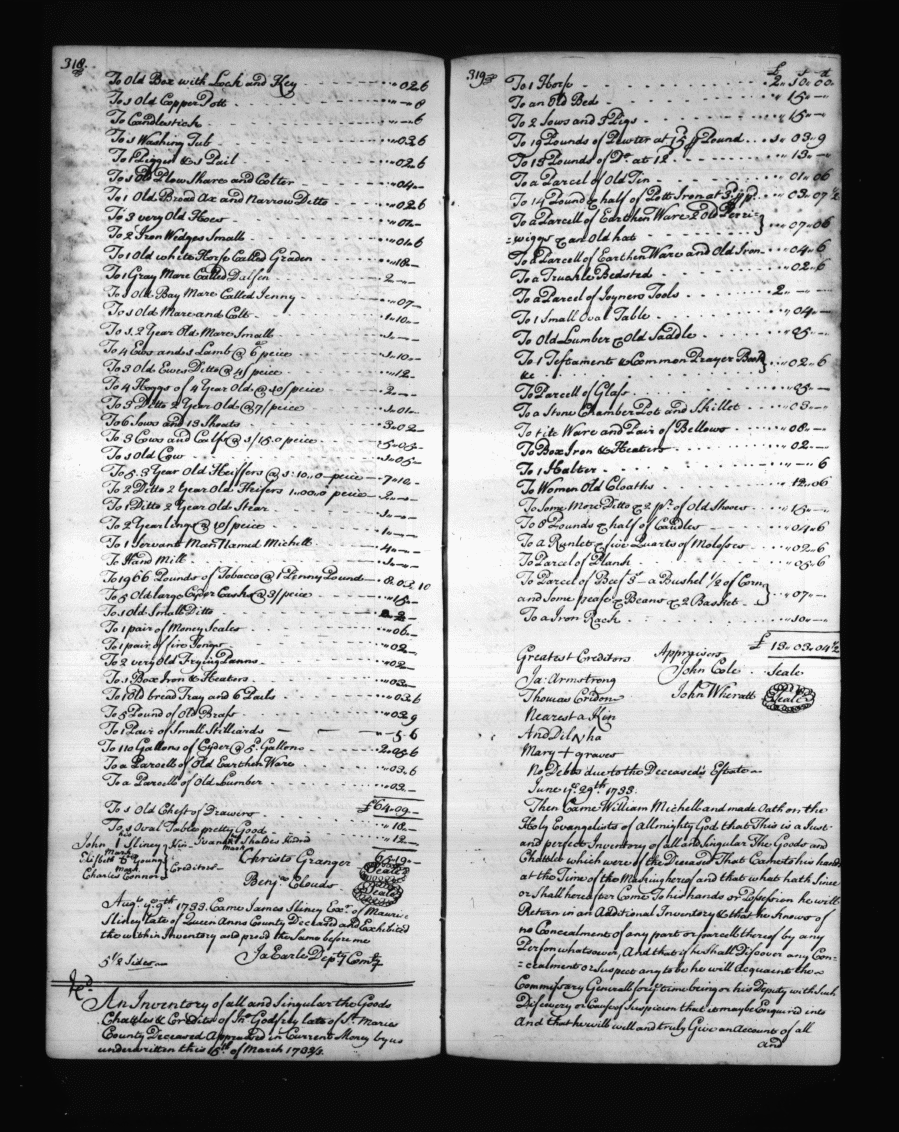 318.
To Old Box with Lock and Key - - - - - " 02 6
To 1 Old Copper Pott - - - " - " 8
To Candlestick - - - " - " 6
To 1 Washing Tub - - - " 03 6
To 1 Piggen & 1 Pail - - - " 02 6
To 1 Old Plow Share and Colter - - - " 04 -
To 1 Old Broad Ax and Narrow Ditto - - - " 02 6
To 3 very Old Hoes - - -
To 2 Iron Wedges Small - - - " 01 6
To 1 Old white Horse Called Graden - - - " 18 -
To 1 Gray Mare Called - - - 2 - " -
To 1 Old Bay Mare Called Jenny - - - " 07 -
To 1 Old Mare and Colt - - - 1 " 10 -
To 1. 2 Year Old Mare Small - - - 1 " - -
To 4 Ews and 1 Lamb @ 6 peice - - - 1 " 10 -
To 3 Old Ewes Ditto @ 4/ peice - - - " 12 -
To 4 Hoggs of 4 Year Old @ 10/ peice - - - 2 " - -
To 3 Ditto 2 Year Old @ 7/ peice - - - 1 " 01 -
To 6 Sows and 13 Shoats - - - 3 " 02 -
To 3 Cows and Calf @ 1/15.0 peice - - - 5 " 05 -
To 1 Old Cow - - - 1 " 05 -
To 5. 3 Year Old Heiffers @ 1:10.0 peice - - - 7 " 10 -
To 2 Ditto 2 Year Old Heifers 1.00.0 peice - 2 " - -
To 1 Ditto 2 Year Old Stear - - - 1 " - -
To 2 Yearlings @ 10/ peice - - - 1 " - -
To 1 Servant Man Named Michell - - - 4 " - -
To Hand Mill - - - 1 " - -
To 1966 Pounds of Tobacco @ 1 Penny Pound - - - 8. 03. 10
To 5 Old large Cyder Casks @ 3/ peice - - - " 15 -
To 1 Old Small Ditto - - - 2 -
To 1 pair of Money Scales - - - " 06 -
To 1 pair of fire Tongs - - - " 02 -
To 2 very Old Frying Panns - - - " 02 -
To 1 Box Iron & Heaters - - - " 03 -
To 1 Old bread Tray and 6 Pails - - - " 03. 6
To 5 Pound of Old Brass - - - " 03. 9
To 1 Pair of Small Stilliards - - - " - 5 - 6
To 110 Gallons of Cyder @ 5. Gallons - - - 2 " 05. 6
To a Parcell of Old Earthen Ware - - - " 03. 6
To a Parcell of Old Lumber - - - " 03 -
£ 64 " 09 -
To 1 Old Chest of Drawers - - - " 18 -
To 1 Oval Table pretty Good - - - " 12 -
65 " 19 " -
John his I mark Sliney } Kin
Elisbett mark Young
Charles Connor } Creditors
Christo Granger Seale
Benjn. Clouds Seale
Augt. ye. 9th. 1733. Came James Sliney Exr. of Maurice
Sliney late of Queen Anns County Deceased and Exhibited
the within Inventory and proved the Same before me
5 1/2 Sides Ja Earle Depty Comry
An Inventory of all and Singular the Goods
Chattles & Credits of Jno. Godfrey late of St. Maries
County Deceased Appraised in Current Money by us
underwritten this 15th. of March 1732/3.
319
£ s d
To 1 Horse - - - 2 " 10 " 00
To an Old Bed - - - " 15 " -
To 2 Sows and 3 Pigs - - - " 15 " -
To 19 Pounds of Pewter at 15 p Pound - - - 1 " 03 " 9
To 13 Pounds of Do. at 12 - - - " 13 " -
To a Parcel of Old Tin - - - " 01 " 06
To 14 Pound & half of Pott Iron at 3 p p. - - - " 03 " 07 1/2
To a Parcell of Earthen Ware 2 Old Perri=
=wiggs & an Old hat } - - - " 07 " 06
To a Parcell of Earthen Ware and Old Iron - - - " 04 " 6
To a Truckle Bedsted - - - " 02 " 6
To a Parcel of Joyners Tools - - - 2 " - " -
To 1 Small Oval Table - - - " 04 " -
To Old Lumber & Old Saddle - - - " 25 " -
To 1 Testament & Common Prayer Book
&c } - - - " 02 " 6
To Parcell of Glass - - - " 05 " -
To a Stone Chamber Pot and Skillet - - - " 03 " -
To tite Ware and Pair of Bellows - - - " 08 " -
To Box Iron & Heaters - - - " 02 " -
To 1 Halter - - - " - " 6
To Women Old Cloaths - - - " 12 " 06
To Some More Ditto & 2 pr. of Old Shooes - - - " 15 " -
To 8 Pounds & half of Candles - - - " 04 " 6
To A Runlet & five Quarts of Molosses - - - " 02 " 6
To Parcel of Plank - - - " 05 " 6
To Parcel of Beef - a Bushel 1/2 of Corn
and Some pease & Beans & 2 Basket } - - - " 07 " -
To a Iron Rack - - - " 10 " -
£ 13 " 03 " 04 1/2
Greatest Creditors Apprizers
Ja: Armstrong John Cole Seale
Thomas John Wheratt Seale
Nearest a Kin
And
Mary + graves
No Debts due to the Deceased's Estate
June ye. 29th. 1733.
Then Came William Michell and made Oath on the
Holy Evangelists of Allmighty God that This is a Just
and perfect Inventory of all and Singular The Goods and
Chattles which were of the Deceased That Came to his hand
at the Time of the Making hereof and that what hath Since
or Shall hereafter Come To his hands or Possession he will
Return in an Additional Inventory & that he Knows of
no Concealment of any part or parcell thereof by any
Person whatsoever, And that if he Shall Discover any Con=
=cealment or Suspect any to be he will Acquaint the
Commissary Generall for ye. time being or his Deputy with Such
Discovery or Cause of Suspicion that it may be Enquired into
And that he will well and truly Give an Accounts of all
and